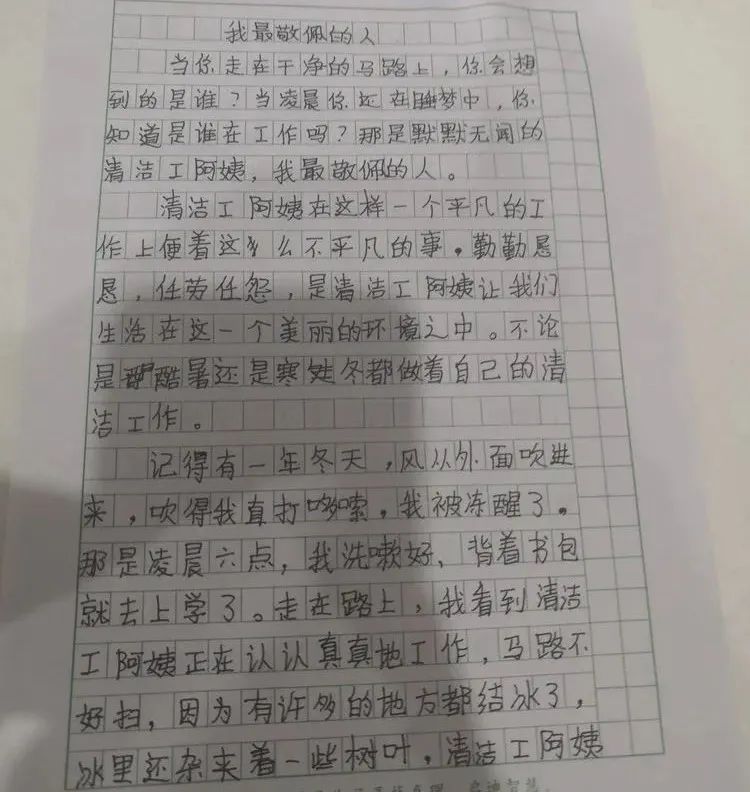 我最敬佩的人
当你走在干净的马路上，你会想
到的是谁？当凌晨你还在睡梦中，你
知道是谁在工作吗？那是默默无闻的
清洁工阿姨，我最敬佩的人。
清洁工阿姨在这样一个平凡的工
作上便着这么不平凡的事。勤勤恳
恳，任劳任怨，是清洁工阿姨让我们
生活在这一个美丽的环境之中。不论
是酷暑还是寒冬都做着自己的清
洁工作。
记得有一年冬天，风从外面吹进
来，吹得我直打哆嗦。我被冻醒了。
那是凌晨六点，我洗嗽好、背着书包
就去上学了。走在路上，我看到清洁
工阿姨正在认认真真地工作，马路不
好扫，因为有许多的地方都结冰了，
冰里还杂来着一些树叶，清洁工阿姨